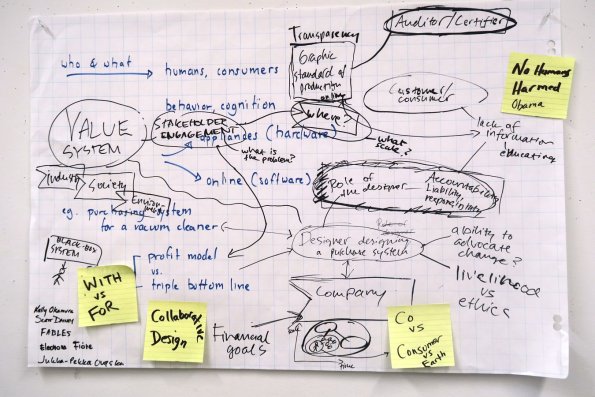 Auditor/Certifier
Transparency
Graphic
standard of
production
online
who & what
humans, consumers
No Humans
Harmed
Obama
Customer/
consumer
behavior, cognition
Where?
VALUE
SYSTEM
STAKEHOLDER
ENGAGEMENT
appliances (hardware)
what is
the problem?
what
scale?
lack of
information
educating
online (software)
Role of
the designer
Accountability
Liability
responsibility
Industry
Society
Environ
eg. purchasing system
for a vacuum cleaner
BLACK-BOX
SYSTEM
Designer designing
a purchase system
ability to
advocate
change?
profit model
vs.
triple bottom line
livelihood
vs
ethics
WITH
vs
FOR
Collaborative
Design
Financial
goals
Company
self
time
Co
vs
Consumer
vs
Earth
Kelly Okamura
Scott Davey
FABLES
Eleonora Fiore